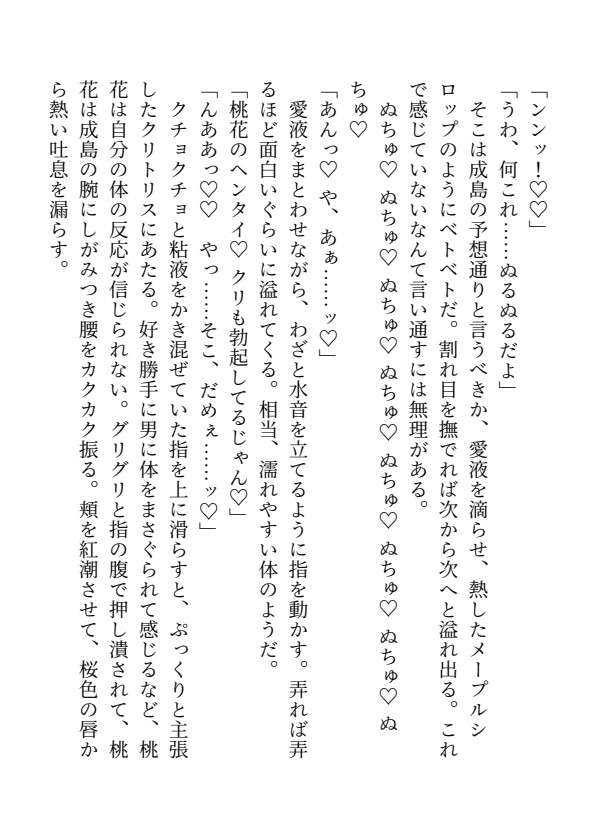 「ンンッ！♡♡」
「うわ、何これ……ぬるぬるだよ」
　そこは成島の予想通りと言うべきか、愛液を滴らせ、熱したメープルシ
ロップのようにベトベトだ。割れ目を撫でれば次から次へと溢れ出る。これ
で感じていないなんて言い通すには無理がある。
　ぬちゅ♡　ぬちゅ♡　ぬちゅ♡　ぬちゅ♡　ぬちゅ♡　ぬちゅ♡　ぬちゅ♡　ぬ
ちゅ♡
「あんっ♡　や、あぁ……ッ♡」
　愛液をまとわせながら、わざと水音を立てるように指を動かす。弄れば弄
るほど面白いぐらいに溢れてくる。相当、濡れやすい体のようだ。
「桃花のヘンタイ♡　クリも勃起してるじゃん♡」
「んああっ♡♡　やっ……そこ、だめぇ……ッ♡」
　クチョクチョと粘液をかき混ぜていた指を上に滑らすと、ぷっくりと主張
したクリトリスにあたる。好き勝手に男に体をまさぐられて感じるなど、桃
花は自分の体の反応が信じられない。グリグリと指の腹で押し潰されて、桃
花は成島の腕にしがみつき腰をカクカク振る。頬を紅潮させて、桜色の唇か
ら熱い吐息を漏らす。